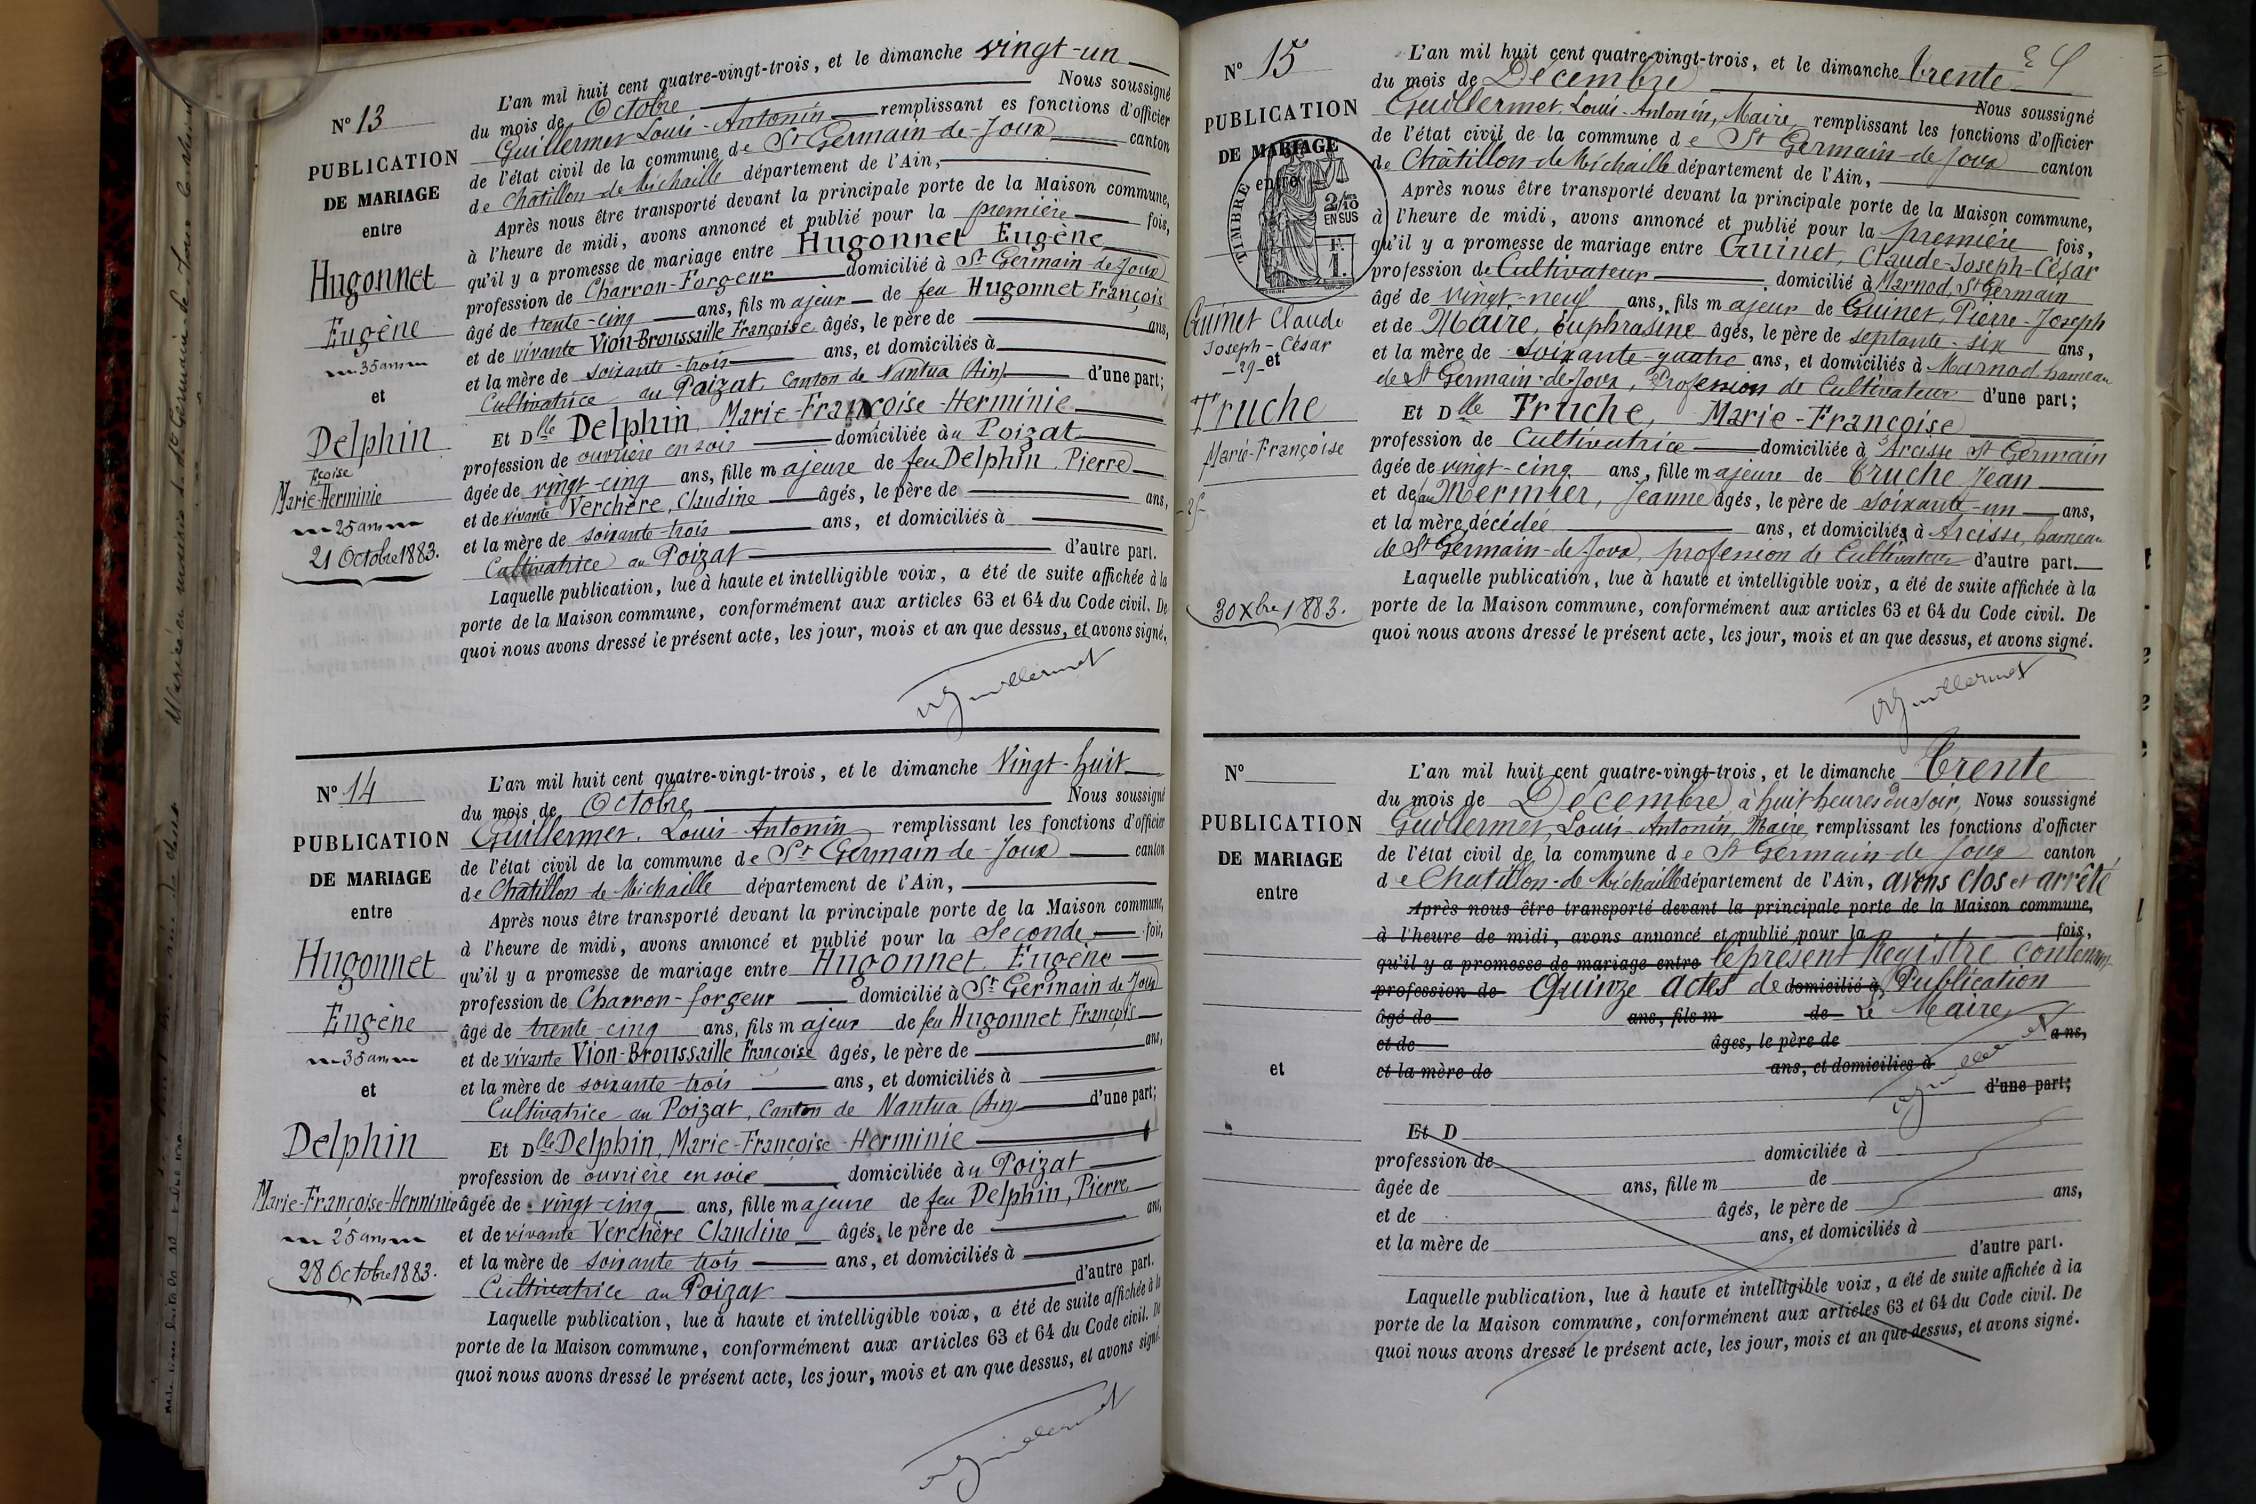 N° 13
PUBLICATION
DE MARIAGE
entre
Hugonnet
Eugène
35 ans
et
Delphin
Fçoise
Marie-Herminie
25 ans
21 Octobre 1883.
L'an mil huit cent quatre-vingt-trois, et le dimanche vingt-un
du mois de Octobre Nous soussigné
Guillermet Louis-Antonin remplissant es fonctions d'officier
de l'état civil de la commune de St Germain-de-Joux canton
de Chatillon-de-Michaille département de l'Ain,
Après nous être transporté devant la principale porte de la Maison commune,
à l'heure de midi, avons annoncé et publié pour la première fois,
qu'il y a promesse de mariage entre Hugonnet Eugène
profession de Charron-Forgeur domicilié à St Germain-de-Joux
âgé de trente-cinq ans, fils majeur de feu Hugonnet François
et de vivante Vion-Broussaille Françoise âgés, le père de ans,
et la mère de soixante-trois ans, et domiciliés à
Cultivatrice au Poizat, Canton de Nantua (Ain) d'une part;
Et Dlle Delphin, Marie-Françoise-Herminie
profession de ouvrière en soie domiciliée au Poizat
âgée de vingt-cinq ans, fille majeure de feu Delphin, Pierre
et de vivante Verchère, Claudine âgés, le père de ans,
et la mère de soixante-trois ans, et domiciliés à
Cultivatrice au Poizat d'autre part.
Laquelle publication, lue à haute et intelligible voix, a été de suite affichée à la
porte de la Maison commune, conformément aux articles 63 et 64 du Code civil. De
quoi nous avons dressé le présent acte, les jour, mois et an que dessus, et avons signé.
Guillermet
N° 14
PUBLICATION
DE MARIAGE
entre
Hugonnet
Eugène
35 ans
et
Delphin
Marie-Françoise-Herminie
25 ans
28 Octobre 1883.
L'an mil huit cent quatre-vingt-trois, et le dimanche Vingt-huit
du mois de Octobre Nous soussigné
Guillermet, Louis-Antonin remplissant les fonctions d'officier
de l'état civil de la commune de St Germain-de-Joux canton
de Chatillon-de-Michaille département de l'Ain,
Après nous être transporté devant la principale porte de la Maison commune,
à l'heure de midi, avons annoncé et publié pour la Seconde fois,
qu'il y a promesse de mariage entre Hugonnet, Eugène
profession de Charron-forgeur domicilié à St Germain de Joux
âgé de trente-cinq ans, fils majeur de feu Hugonnet François
et de vivante Vion-Broussaille Françoise âgés, le père de ans,
et la mère de soixante-trois ans, et domiciliés à
Cultivatrice au Poizat, Canton de Nantua (Ain) d'une part;
Et Dlle Delphin, Marie-Françoise-Herminie
profession de ouvrière en soie domiciliée au Poizat
âgée de vingt-cinq ans, fille majeure de feu Delphin, Pierre
et de vivante Verchère Claudine âgés, le père de ans,
et la mère de soixante trois ans, et domiciliés à
Cultivatrice au Poizat d'autre part.
Laquelle publication, lue à haute et intelligible voix, a été de suite affichée à la
porte de la Maison commune, conformément aux articles 63 et 64 du Code civil. De
quoi nous avons dressé le présent acte, les jour, mois et an que dessus, et avons signé.
Guillermet
N° 15
PUBLICATION
DE MARIAGE
entre
TIMBRE
2/10
EN SUS
F.
1.
Guinet Claude
Joseph-César
29
et
Truche
Marie-Françoise
30 Xbre 1883.
L'an mil huit cent quatre-vingt-trois, et le dimanche trente
du mois de Décembre Nous soussigné
Guillermet, Louis-Antonin, Maire, remplissant les fonctions d'officier
de l'état civil de la commune de St Germain-de-Joux canton
de Châtillon-de-Michaille département de l'Ain,
Après nous être transporté devant la principale porte de la Maison commune,
à l'heure de midi, avons annoncé et publié pour la première fois,
qu'il y a promesse de mariage entre Guinet, Claude-Joseph-César
profession de Cultivateur domicilié à Marnod, St Germain
âgé de vingt-neuf ans, fils majeur de Guinet, Pierre-Joseph
et de Maire, Euphrasine âgés, le père de septante-six ans,
et la mère de soixante-quatre ans, et domiciliés à Marnod hameau
de St Germain-de-Joux, Profession de Cultivateur d'une part;
Et Dlle Truche, Marie-Françoise
profession de Cultivatrice domiciliée à Arcisse St Germain
âgée de vingt-cinq ans, fille majeure de Truche Jean
et de feu Mermier, Jeanne âgés, le père de soixante-un ans,
et la mère décédée ans, et domiciliés à Arcisse, hameau
de St Germain-de-Joux, profession de Cultivateur d'autre part.
Laquelle publication, lue à haute et intelligible voix, a été de suite affichée à la
porte de la Maison commune, conformément aux articles 63 et 64 du Code civil. De
quoi nous avons dressé le présent acte, les jour, mois et an que dessus, et avons signé.
Guillermet
N°
PUBLICATION
DE MARIAGE
entre
et
L'an mil huit cent quatre-vingt-trois, et le dimanche Trente
du mois de Décembre à huit heures du soir, Nous soussigné
Guillermet, Louis-Antonin, Maire, remplissant les fonctions d'officier
de l'état civil de la commune de St Germain-de Joux canton
de Chatillon-de Michaille département de l'Ain, avons clos et arrêté
Après nous être transporté devant la principale porte de la Maison commune,
à l'heure de midi, avons annoncé et publié pour la fois,
qu'il y a promesse de mariage entre le présent Registre contenant
profession de Quinze actes de domicilié à Publication
âgé de ans, fils m de Le Maire,
et de âgés, le père de ans,
et la mère de ans, et domiciliés à
Guillermet d'une part;
Et D
profession de domiciliée à
âgée de ans, fille m de
et de âgés, le père de ans,
et la mère de ans, et domiciliés à
d'autre part.
Laquelle publication, lue à haute et intelligible voix, a été de suite affichée à la
porte de la Maison commune, conformément aux articles 63 et 64 du Code civil. De
quoi nous avons dressé le présent acte, les jour, mois et an que dessus, et avons signé.